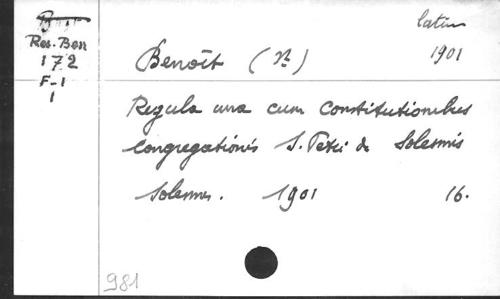 latin
Res. Ben
172
F-1
1
Benoît (St)
1901
Regula una cum Constitutionibus
congregationis S. Petri de Solesmis
Solesmes. 1901 16.
981